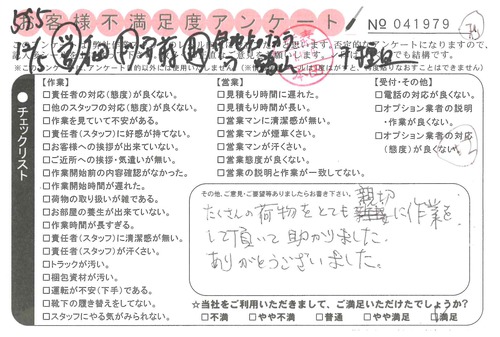 お客様不満足度アンケート
№ 041979
チェックリスト
【作業】
□責任者の対応(態度)が良くない。
□他のスタッフの対応(態度)が良くない。
□作業を見ていて不安がある。
□責任者(スタッフ)に好感が持てない。
□お客様への挨拶が出来ていない。
□ご近所への挨拶・気遣いが無い。
□作業開始前の内容確認がなかった。
□作業開始時間が遅れた。
□荷物の取り扱いが雑である。
□お部屋の養生が出来ていない。
□作業時間が長すぎる。
□責任者(スタッフ)に清潔感が無い。
□責任者(スタッフ)が汗くさい。
□トラックが汚い。
□梱包資材が汚い。
□運転が不安(下手)である。
□靴下の履き替えをしてない。
□スタッフにやる気がみられない。
【営業】
□見積もり時間に遅れた。
□見積もり時間が長い。
□営業マンに清潔感が無い。
□営業マンが煙草くさい。
□営業マンが汗くさい。
□営業態度が良くない。
□営業の説明と作業が一致してない。
【受付・その他】
□電話の対応が良くない。
□オプション業者の説明
・作業が良くない。
□オプション業者の対応
(態度)が良くない。
その他、ご意見・ご要望等ありましたらお書き下さい。
親切
たくさんの荷物をとても に作業を
して頂いて助かりました。
ありがとうございました。
☆当社をご利用いただきまして、ご満足いただけてでしょうか?
□不満 □やや不満 □普通 □やや満足 □満足